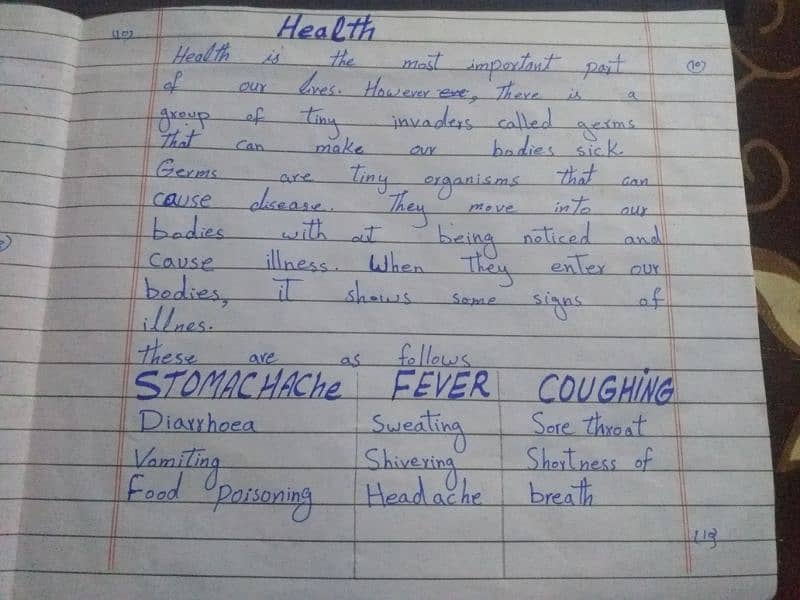 Health
Health is the most important part
of our lives. However, There is a
group of Tiny invaders called germs
That can make our bodies sick.
Germs are Tiny organisms that can
cause disease. They move into our
bodies with at being noticed and
Cause illness. When They enter our
bodies, iT shows some signs of
illnes.
These are as follows
STOMACHAChe FEVER COUGHiNG
Diarrhoea Sweating Sore throat
Vomiting Shivering Shortness of
Food Poisoning Headache breath